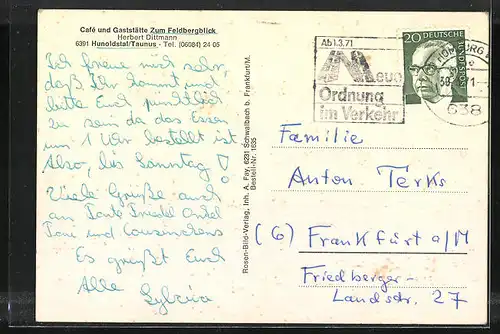 Café und Gaststätte Zum Feldbergblick
Herbert Dittmann
6391 Hunoldstal/Taunus - Tel. (06084) 24 05
Ich freue mich sehr,
daß Ihr kommt und
bitte Euch pünktlich
zu sein da das Essen
um 1 Uhr bestellt ist
Also, bis Sonntag!
Viele Grüße auch
an Tante Friedel Onkel
Toni und Cousinchens
Es grüßt Euch
Alle Sylvia
Rosen-Bild-Verlag, Inh. A. Fay, 6231 Schwalbach b. Frankfurt/M.
Bestell-Nr. 1635
Ab 1.3.71
Neue
Ordnung
im Verkehr
20 DEUTSCHE
BUNDESPOST
HOMBURG
638
Familie
Anton Terks
(6) Frankfurt a/M
Friedberger-
Landstr. 27